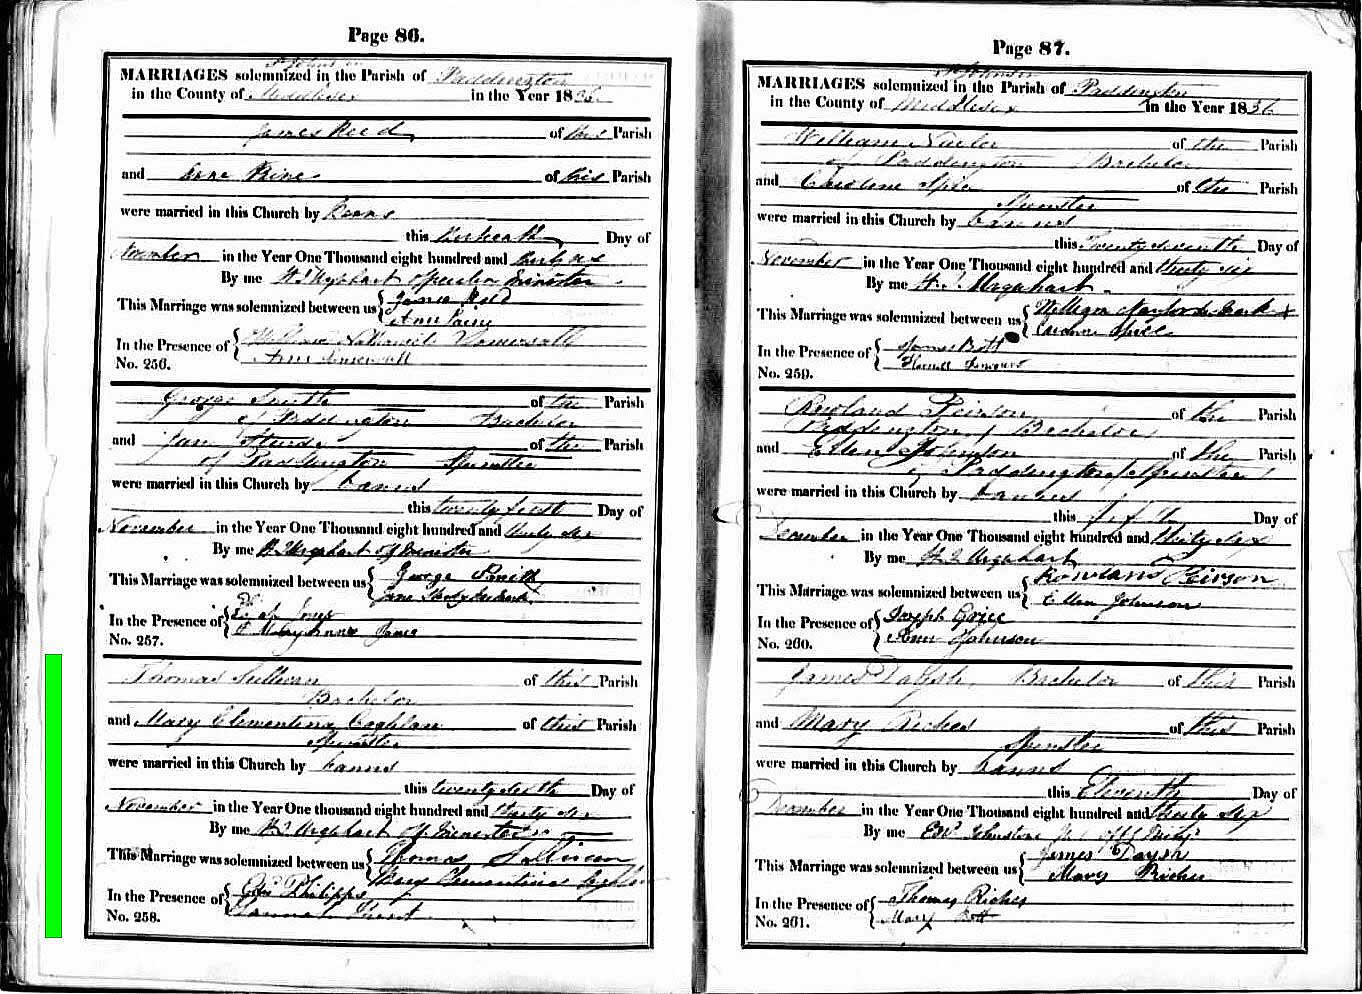 Page 86.
St Johns in
MARRIAGES solemnized in the Parish of Paddington
in the County of Middlesex in the Year 1836
James Reed of this Parish
and Anne Paine of this Parish
were married in this Church by Banns
this thirteenth Day of
November in the Year One Thousand eight hundred and thirty six
By me W. Urquhart Minister
This Marriage was solemnized between us { James Reed
Ann Paine
In the Presence of { William Nathaniel
Ann
No. 256.
George Smith of the Parish
of Paddington Bachelor
and Jane of the Parish
of Paddington Spinster
were married in this Church by banns
this twenty first Day of
November in the Year One Thousand eight hundred and thirty six
By me W. Urquhart Off Minister
This Marriage was solemnized between us { George Smith
Jane
In the Presence of { Jones
Mary Anne Jones
No. 257.
Thomas Sullivan of this Parish
Bachelor
and Mary Clementina Coghlan of this Parish
Spinster
were married in this Church by banns
this twenty sixth Day of
November in the Year One thousand eight hundred and thirty six
By me W. Urquhart Off Minister
This Marriage was solemnized between us { Thomas Sullivan
Mary Clementina Coghlan
In the Presence of { Philipps
Hannah
No. 258.
Page 87.
St Johns in
MARRIAGES solemnized in the Parish of Paddington
in the County of Middlesex in the Year 1836
William Naylor of the Parish
of Paddington Bachelor
and Caroline Spice of the Parish
Spinster
were married in this Church by banns
this Twenty seventh Day of
November in the Year One Thousand eight hundred and thirty six
By me W. Urquhart
This Marriage was solemnized between us { William Naylor his mark x
Caroline Spice
In the Presence of { James Bott
Harriett
No. 259.
Rowland Peirson of the Parish
Paddington / Bachelor /
and Ellen Johnson of the Parish
of Paddington / Spinster /
were married in this Church by banns
this fifth Day of
December in the Year One Thousand eight hundred and thirty six
By me W. Urquhart
This Marriage was solemnized between us { Rowland Peirson
Ellen Johnson
In the Presence of { Joseph Grice
Ann Johnson
No. 260.
James Daysh, Bachelor of this Parish
and Mary Riches of this Parish
Spinster
were married in this Church by banns
this Eleventh Day of
December in the Year One Thousand eight hundred and thirty six
By me Edwd Johnstone
This Marriage was solemnized between us { James Daysh
Mary Riches
In the Presence of { Thomas Riches
Mary Bott
No. 261.